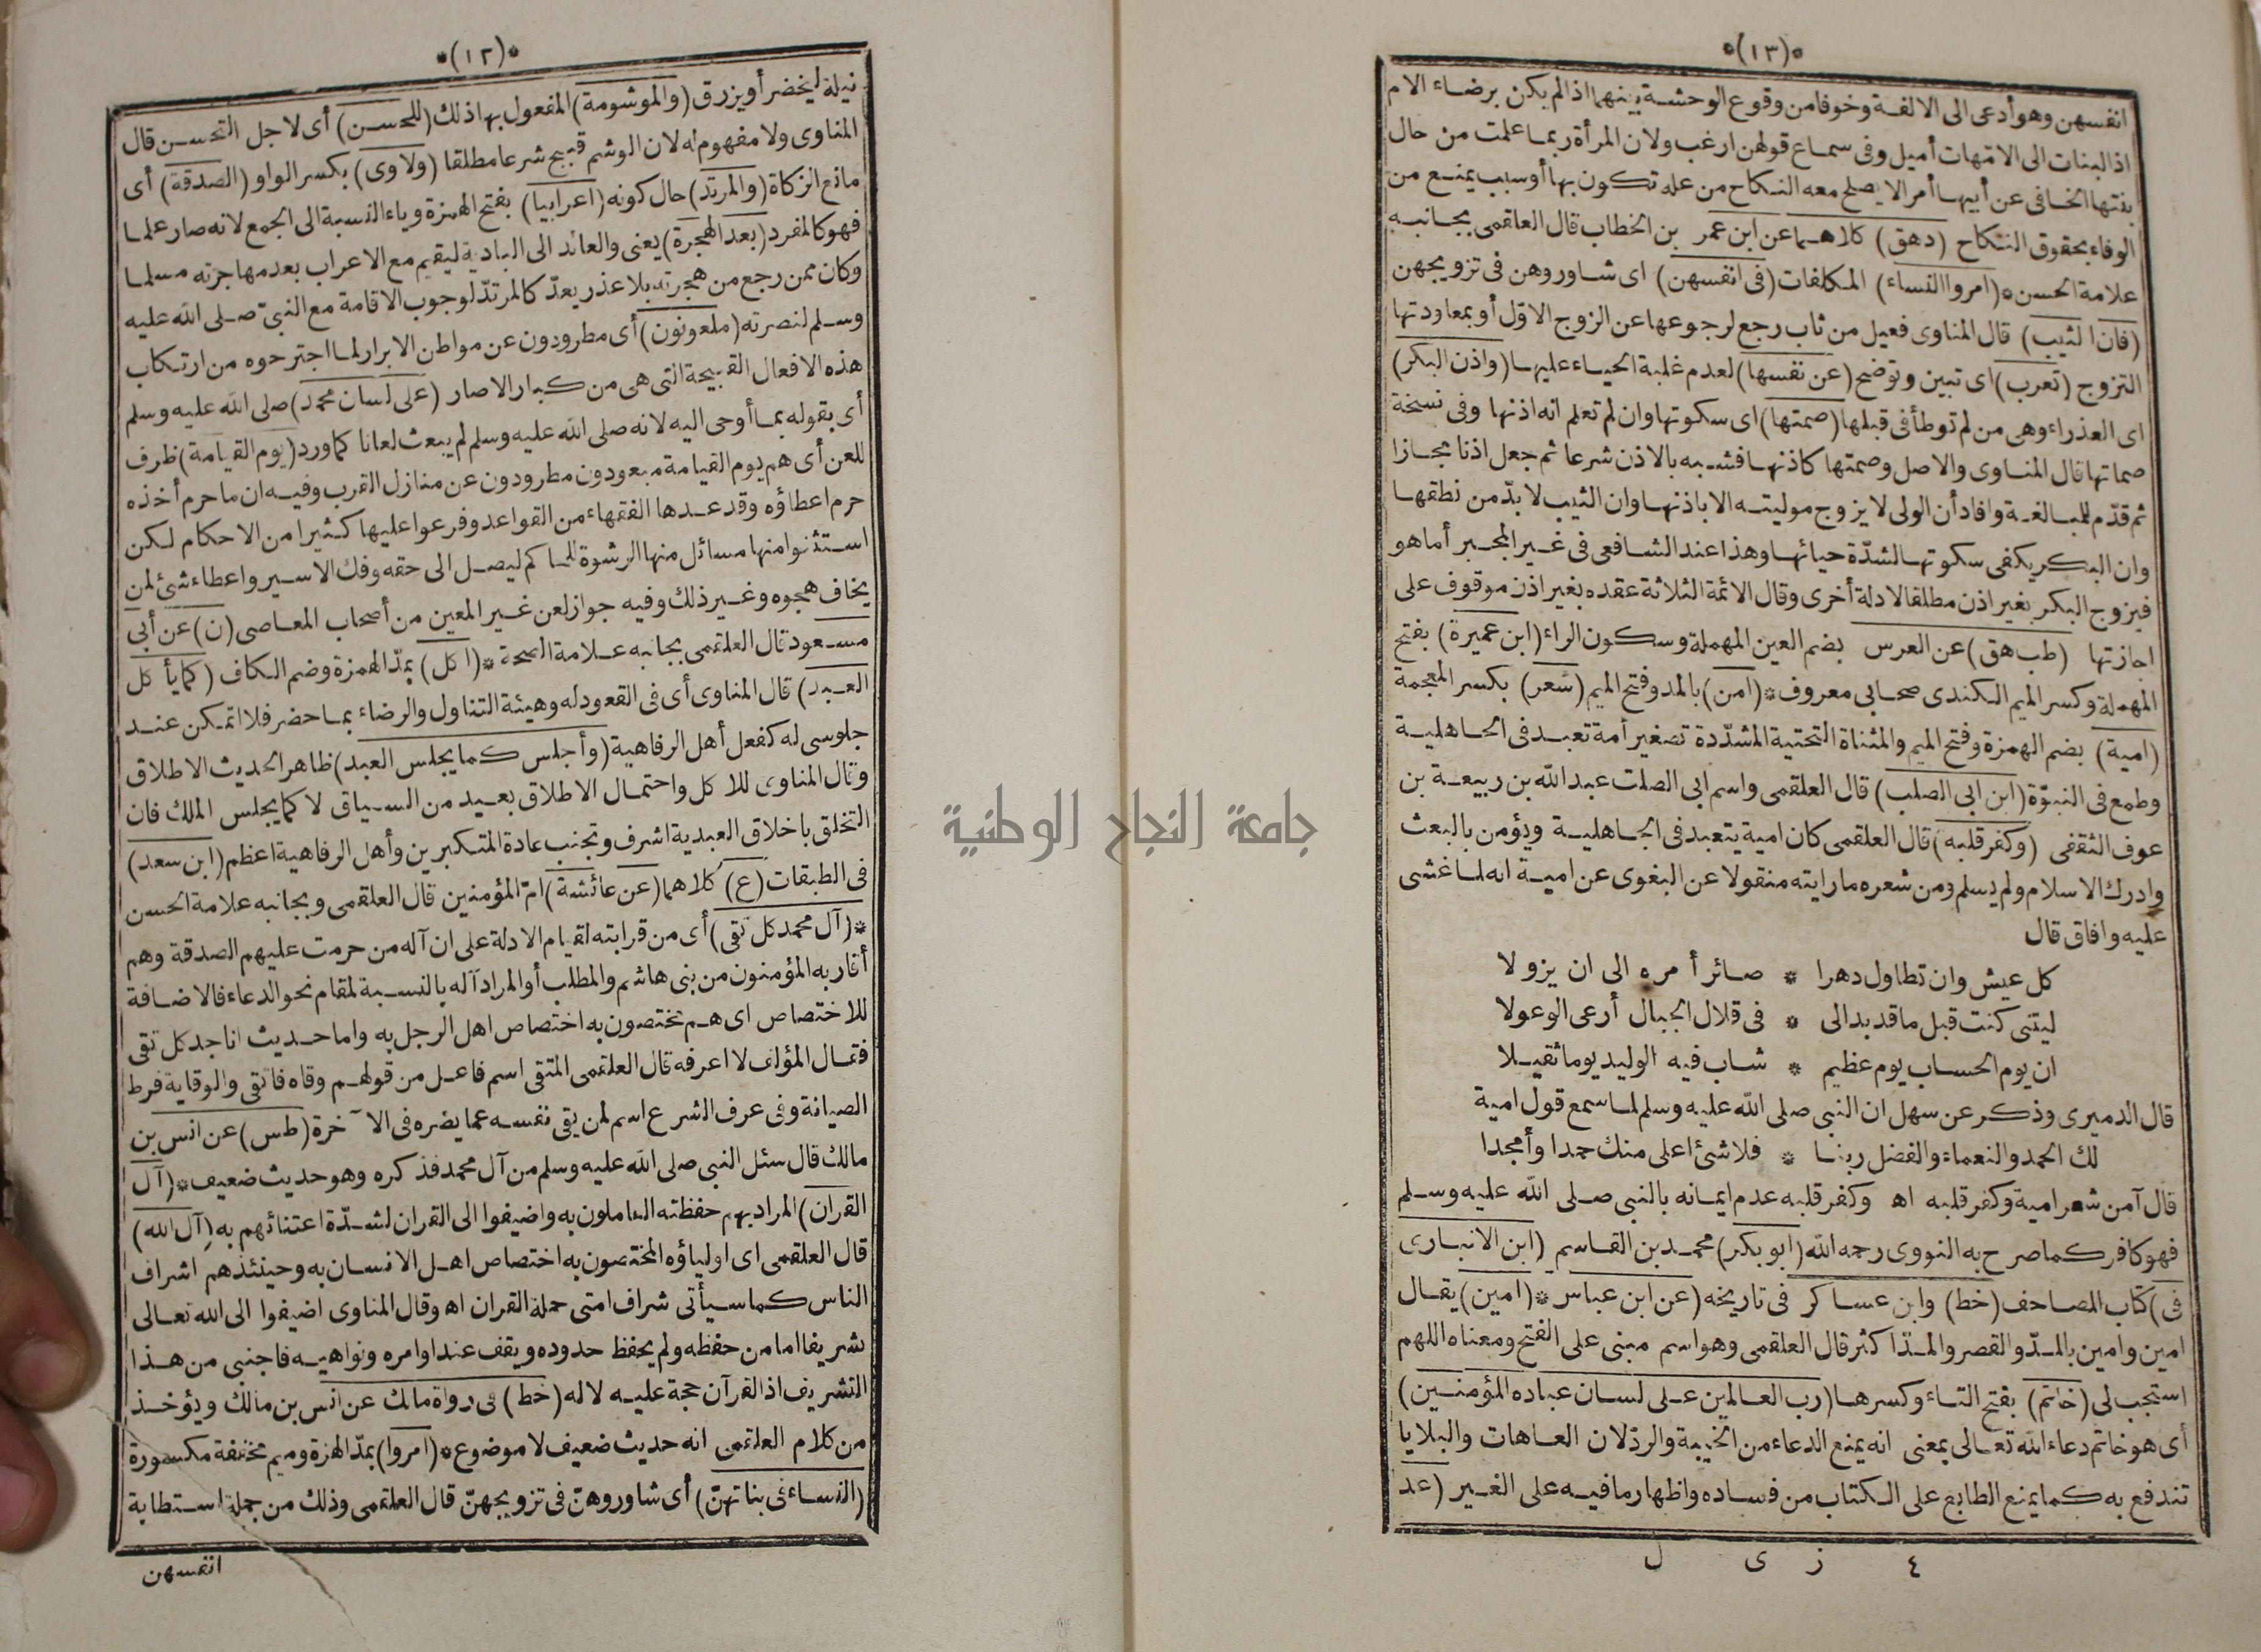 *(١٢)*
نيلة ليخضر أو يزرق (والموشومة) المفعول بها ذلك (للحسن) أى لاجل التحسن قال
المناوى ولا مفهوم له لان الوشم قبيح شرعا مطلقا (ولاوى) بكسر الواو (الصدقة) أى
مانع الزكاة (والمرتد) حال كونه (اعرابيا) بفتح الهمزة وياء النسبة الى الجمع لانه صار علما
فهو كالمفرد (بعد الهجرة) يعنى والعائد الى البادية ليقيم مع الاعراب بعد مهاجرته مسلما
وكان ممن رجع من هجرته بلا عذر يعدّ كالمرتدّ لوجوب الاقامة مع النبىّ صلى الله عليه
وسلم لنصرته (ملعونون) أى مطرودون عن مواطن الابرار لما اجترحوه من ارتكاب
هذه الافعال القبيحة التى هى من كبار الاصار (على لسان محمد) صلى الله عليه وسلم
أى بقوله بما أوحى اليه لانه صلى الله عليه وسلم لم يبعث لعانا كما ورد (يوم القيامة) ظرف
للعن أى هم يوم القيامة مبعودون مطرودون عن منازل القرب وفيه ان ما حرم أخذه
حرم اعطاؤه وقد عدها الفقهاء من القواعد وفرعوا عليها كثيرا من الاحكام لكن
استثنوا منها مسائل منها الرشوة للحاكم ليصل الى حقه وفك الاسير واعطاء شئ لمن
يخاف هجوه وغير ذلك وفيه جواز لعن غير المعين من أصحاب المعاصى (ن) عن أبى
مسعود قال العلقمى بجانبه علامة الصحة *(اكل) بمدّ الهمزة وضم الكاف (كما يأكل
العبد) قال المناوى أى فى القعود له وهيئة التناول والرضاء بما حضر فلا اتمكن عند
جلوسى له كفعل أهل الرفاهية (وأجلس كما يجلس العبد) ظاهر الحديث الاطلاق
وقال المناوى للاكل واحتمال الاطلاق بعيد من السياق لا كما يجلس الملك فان
التخلق باخلاق العبدية اشرف وتجنب عادة المتكبرين وأهل الرفاهية اعظم (ابن سعد)
فى الطبقات (ع) كلاهما (عن عائشة) امّ المؤمنين قال العلقمى وبجانبه علامة الحسن
*(آل محمد كل تقى) أى من قرابته لقيام الادلة على ان آله من حرمت عليهم الصدقة وهم
أقاربه المؤمنون من بنى هاشم والمطلب أو المراد آله بالنسبة لمقام نحو الدعاء فالاضافة
للاختصاص اى هم مختصون به اختصاص اهل الرجل به واما حديث انا جد كل تقى
فقال المؤلف لا اعرفه قال العلقمى المتقى اسم فاعل من قولهم وقاه فاتقى والوقاية فرط
الصيانة وفى عرف الشرع اسم لمن يقى نفسه عما يضره فى الآخرة (طس) عن انس بن
مالك قال سئل النبى صلى الله عليه وسلم من آل محمد فذكره وهو حديث ضعيف *(آل
القرآن) المراد بهم حفظته العاملون به واضيفوا الى القران لشدّة اعتنائهم به (آل الله)
قال العلقمى اى اولياؤه المختصون به اختصاص اهل الانسان به وحينئذ هم اشراف
الناس كما سيأتى شراف امتى حملة القران اه وقال المناوى اضيفوا الى الله تعالى
تشريفا اما من حفظه ولم يحفظ حدوده ويقف عند اوامره ونواهيه فاجنبى من هذا
التشريف اذ القرآن حجة عليه لا له (خط) فى رواة مالك عن انس بن مالك ويؤخذ
من كلام العلقمى انه حديث ضعيف لا موضوع *(امروا) بمدّ الهمزة وميم مخففة مكسورة
(النساء فى بناتهنّ) أى شاوروهنّ فى تزويجهنّ قال العلقمى وذلك من جملة استطابة
انفسهن
*(١٣)*
انفسهن وهو أدعى الى الالفة وخوفا من وقوع الوحشة بينهما اذا لم يكن برضاء الام
اذ البنات الى الامّهات أميل وفى سماع قولهن ارغب ولان المرأة ربما علمت من حال
بنتها الخافى عن أبيها أمرا لا يصلح معه النكاح من علة تكون بها أو سبب يمنع من
الوفاء بحقوق النكاح (دهق) كلاهما عن ابن عمر بن الخطاب قال العلقمى بجانبه
علامة الحسن *(امروا النساء) المكلفات (فى انفسهن) اى شاوروهن فى تزويجهن
(فان الثيب) قال المناوى فعيل من ثاب رجع لرجوعها عن الزوج الاوّل أو بمعاودتها
التزوج (تعرب) اى تبين وتوضح (عن نفسها) لعدم غلبة الحياء عليها (واذن البكر)
اى العذراء وهى من لم توطأ فى قبلها (صمتها) اى سكوتها وان لم تعلم انه اذنها وفى نسخة
صماتها قال المناوى والاصل وصمتها كاذنها فشبه بالاذن شرعا ثم جعل اذنا مجازا
ثم قدّم للمبالغة وافاد أن الولى لا يزوج موليته الا باذنها وان الثيب لا بدّ من نطقها
وان البكر يكفى سكوتها لشدّة حيائها وهذا عند الشافعى فى غير المجبر أما هو
فيزوج البكر بغير اذن مطلقا لادلة أخرى وقال الائمة الثلاثة عقده بغير اذن موقوف على
اجازتها (طب هق) عن العرس بضم العين المهملة وسكون الراء (ابن عميرة) بفتح
المهملة وكسر الميم الكندى صحابى معروف *(امن) بالمد وفتح الميم (شعر) بكسر المعجمة
(امية) بضم الهمزة وفتح الميم والمثناة التحتية المشدّدة تصغير أمة تعبد فى الجاهلية
وطمع فى النبوّة (ابن ابى الصلب) قال العلقمى واسم ابى الصلت عبد الله بن ربيعة بن
عوف الثقفى (وكفر قلبه) قال العلقمى كان امية يتعبد فى الجاهلية ويؤمن بالبعث
وادرك الاسلام ولم يسلم ومن شعره ما رايته منقولا عن البغوى عن امية انه لما غشى
عليه وافاق قال
كل عيش وان تطاول دهرا * صائر أمره الى ان يزولا
ليتنى كنت قبل ما قد بدالى * فى قلال الجبال أرعى الوعولا
ان يوم الحساب يوم عظيم * شاب فيه الوليد يوما ثقيلا
قال الدميرى وذكر عن سهل ان النبى صلى الله عليه وسلم لما سمع قول امية
لك الحمد والنعماء والفضل ربنا * فلا شئ اعلى منك حمدا وأمجدا
قال آمن شعر امية وكفر قلبه اه وكفر قلبه عدم ايمانه بالنبى صلى الله عليه وسلم
فهو كافر كما صرح به النووى رحمه الله (ابو بكر) محمد بن القاسم (ابن الانبارى
فى) كتاب المصاحف (خط) وابن عساكر فى تاريخه (عن ابن عباس *(امين) يقال
امين وامين بالمدّ والقصر والمدّ اكثر قال العلقمى وهو اسم مبنى على الفتح ومعناه اللهم
استجب لى (خاتم) بفتح التاء وكسرها (رب العالمين على لسان عباده المؤمنين)
أى هو خاتم دعاء الله تعالى بمعنى انه يمنع الدعاء من الخيبة والرد لان العاهات والبلايا
تندفع به كما يمنع الطابع على الكتاب من فساده واظهار ما فيه على الغير (عد
٤ ز ى ل
جامعة النجاح الوطنية